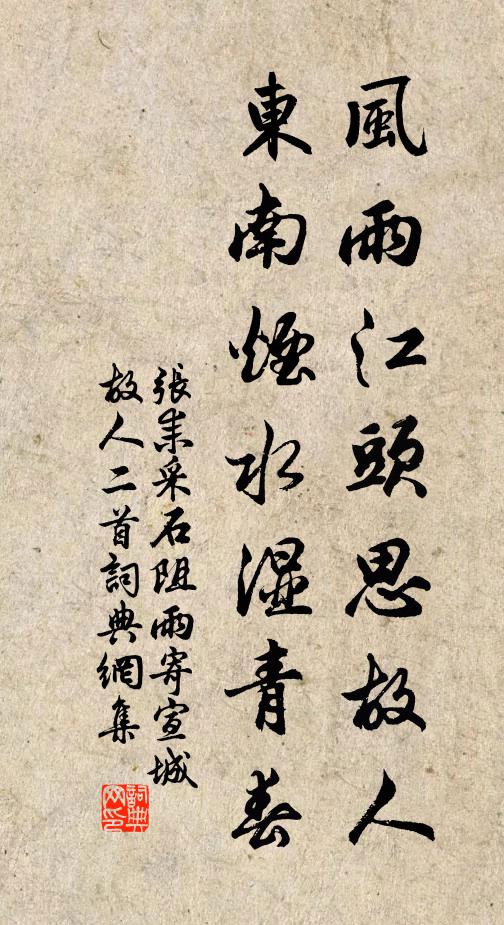 風雨江頭思故人
東南煙水濕青春
張耒采石阻雨寄宣城
故人二首詞典網集
詞典
网印